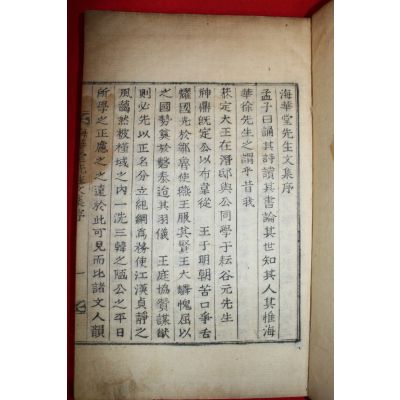 海華堂先生文集序
孟子曰誦其詩讀其書論其世知其人其惟海
華徐先生之謂乎昔我
恭定大王在潛邸與公同學于耘谷元先生
神鼎旣定公以布韋從 王于明朝苦口爭舌
耀國光於鄒魯使燕王服其賢王大 愧屈以
之國 莫於 泰迨其羽儀 王庭協贊謨猷
則必先以正名分立紀綱爲務使江漢貞靜之
風藹然被槿域之內一洗三韓之陋公之平日
所學之正處之之遠於此可見而比諸文人韻
海華堂先生文集序 一